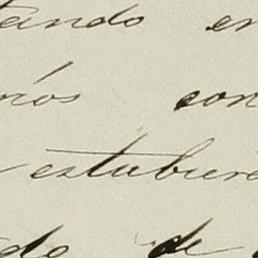 tando en
rios con
estubiere
do de